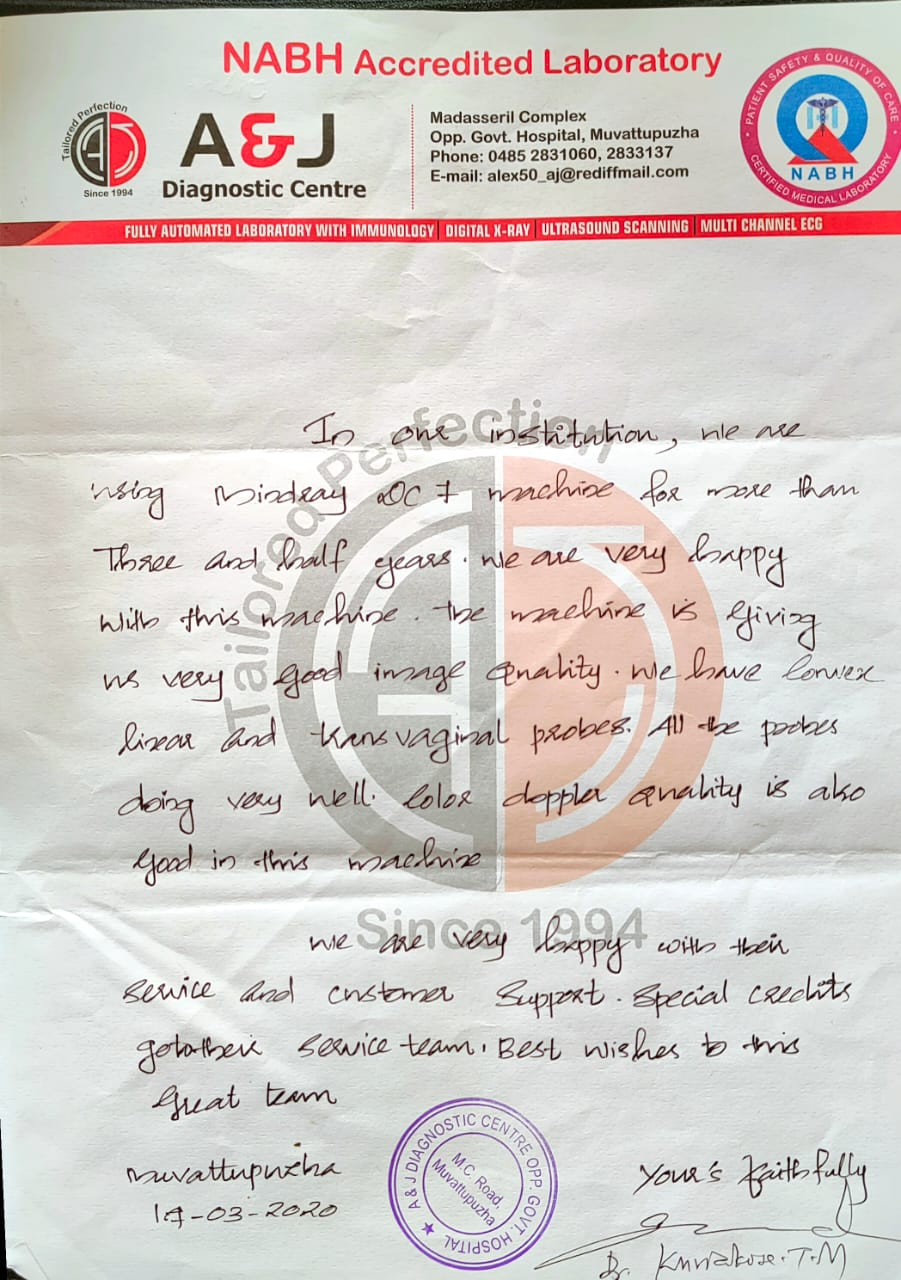 NABH Accredited Laboratory
Tailored Perfection
Since 1994
A&J
Diagnostic Centre
Madasseril Complex
Opp. Govt. Hospital, Muvattupuzha
Phone: 0485 2831060, 2833137
E-mail: alex50_aj@rediffmail.com
PATIENT SAFETY & QUALITY OF CARE
NABH
CERTIFIED MEDICAL LABORATORY
FULLY AUTOMATED LABORATORY WITH IMMUNOLOGY | DIGITAL X-RAY | ULTRASOUND SCANNING | MULTI CHANNEL ECG
Tailored Perfection
In our institution, we are
using Mindray DC 7 machine for more than
Three and half years. We are very happy
with this machine. The machine is giving
us very good image quality. We have Convex
linear and transvaginal probes. All the probes
doing very well. Color doppler quality is also
good in this machine
Since 1994
We are very happy with their
service and customer support. Special credits
go to their service team. Best wishes to this
Great team
Muvattupuzha
-03-2020
A & J DIAGNOSTIC CENTRE OPP. GOVT. HOSPITAL
M.C. Road,
Muvattupuzha
Your's faithfully
Dr. Kuriakose.T.M